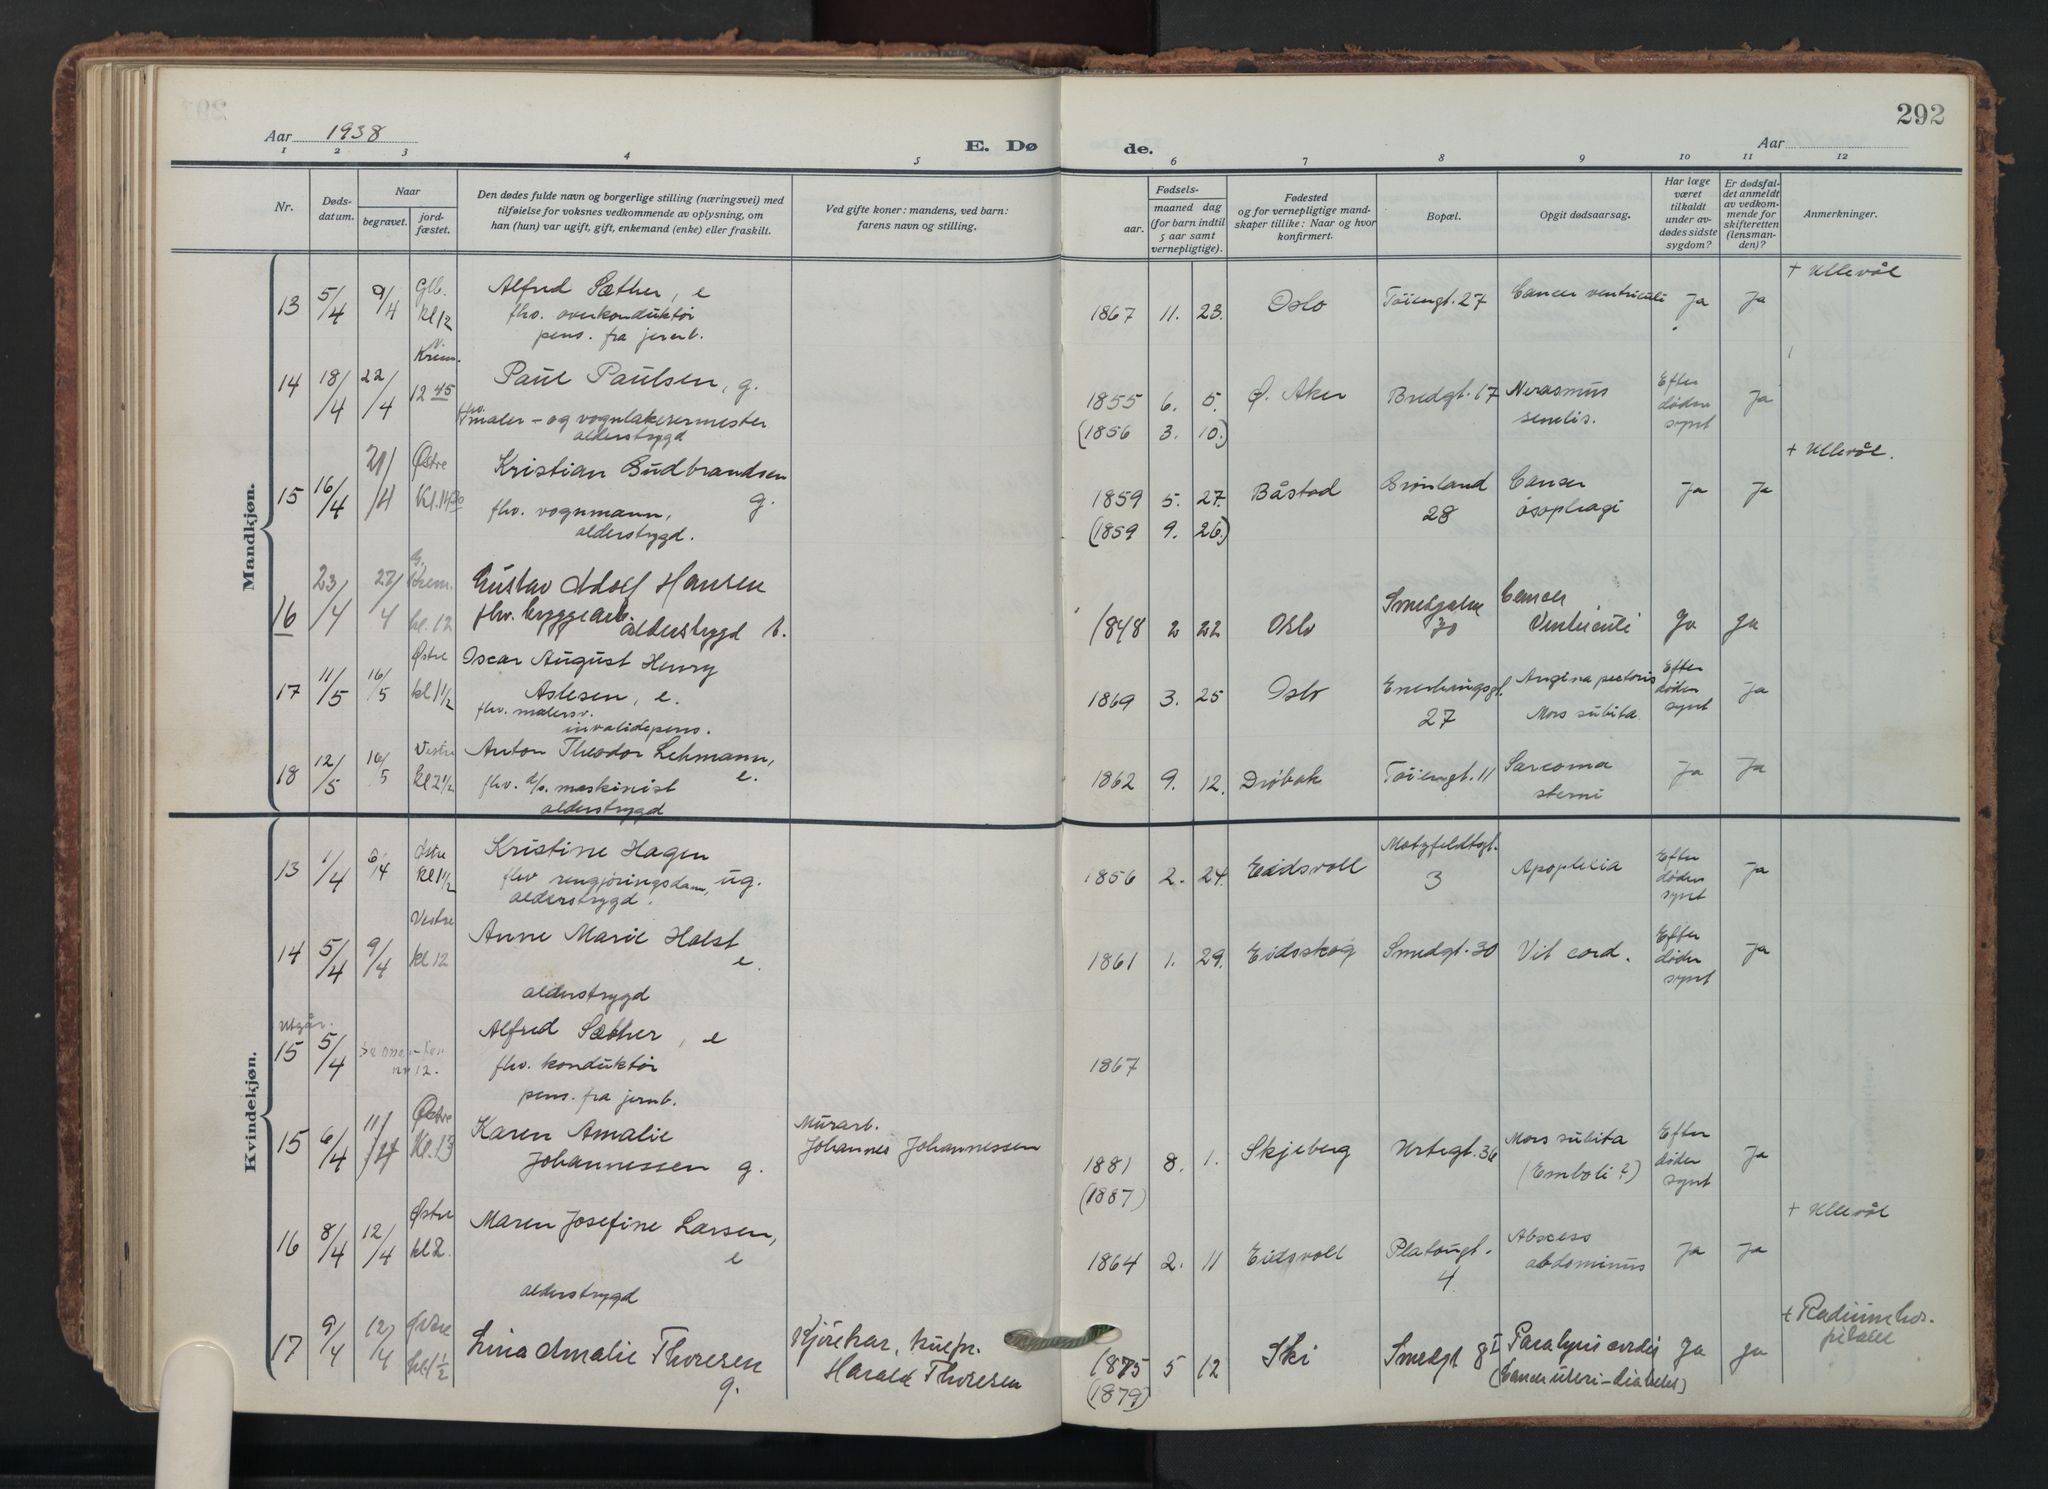 292
Aar 1938
E. Dø
de.
Aar
1 2 3 4 5 6 7 8 9 10 11 12
Nr.
Døds-
datum.
Naar
begravet.
jord-
fæstet.
Den dødes fulde navn og borgerlige stilling (næringsvei) med
tilføielse for voksnes vedkommende av oplysning, om
han (hun) var ugift, gift, enkemand (enke) eller fraskilt.
Ved gifte koner: mandens, ved barn:
farens navn og stilling.
Fødsels-
aar.
maaned dag
(for barn indtil
5 aar samt
vernepligtige).
Fødested
og for vernepligtige mand-
skaper tillike: Naar og hvor
konfirmert.
Bopæl.
Opgit dødsaarsag.
Har læge
været
tilkaldt
under av-
dødes sidste
sygdom?
Er dødsfal-
det anmeldt
av vedkom-
mende for
skifteretten
(lensman-
den)?
Anmerkninger.
Mandkjøn.
13 5/4 9/4 Glb. kl 12 Alfred Sæther, e 1867 11. 23. Oslo Tøiengt. 27 Cancer ventriculi Ja Ja + Ullevål
fhv. overkonduktør
pens. fra jernb.
14 18/4 22/4 V. Krem. 12 45 Paul Paulsen, g. 1855 6. 5. Ø. Aker Bredgt. 17 Efter døden synt Ja
fhv. maler- og vognlakerermester
alderstrygd
(1856 3. 10.)
senilis.
15 16/4 21/4 Østre Kl. 14 30 Kristian Gudbrandsen g. 1859 5. 27. Båstad Grønland 28 Cancer øsophagi Ja Ja + Ullevål.
fhv. vognmann,
alderstrygd.
(1859 9. 26.)
16 23/4 27/4 G. Krem. kl. 12 Gustav Adolf Hansen 1848 2 22 Oslo 30 Cancer Ventriculi Ja Ja
fhv. bryggearb. alderstrygd
17 11/5 16/5 Østre kl 1 1/2 Oscar August Henry 1869 3. 25 Oslo 27 Angina pectoris Efter døden synt Ja
Aslesen, e. Mors subita.
fhv. malersv.
invalidepens.
18 12/5 16/5 Vestre kl 2 1/2 Anton Theodor Lehmann, e. 1862 9. 12. Drøbak Tøiengt. 11 Sarcoma sterni Ja Ja
fhv. d/s. maskinist
alderstrygd
Kvindekjøn.
13 1/4 6/4 Østre kl 1 1/2 Kristine Hagen 1856 2. 24. Eidsvoll Motzfeldtsgt. 3 Apoplexia Efter døden synt Ja
fhv rengjøringsdam, ug.
alderstrygd.
14 5/4 9/4 Vestre kl 12 Anne Marie Holst e. 1861 1. 29. Eidsskog Smedgt. 30 Vit cord. Efter døden synt Ja
alderstrygd
Utgår.
15 5/4 Alfred Sæther, e 1867
fhv. konduktør
pens. fra jernb.
15 6/4 11/4 Østre Kl. 13 Karen Amalie Murarb. 1881 8. 1. Skjeberg Urtegt. 36 Mors subita Efter døden synt Ja
Johannessen g. Johannes Johannessen (1887) (Emboli?)
16 8/4 12/4 Østre kl 2. Maren Josefine Larsen, e 1864 2. 11 Eidsvoll Platougt. 4 Abscess abdominus Ja Ja + Ullevål
alderstrygd
17 9/4 12/4 Østre kl 1 1/2 Lina Amalie Thoresen g. Kjørekar, 1875 5 12 Ski Smedgt 8 I Paralysis cordis Ja Ja + Radiumhos-
Harald Thoresen (1879) (Cancer uteri - diabetes) pitalet